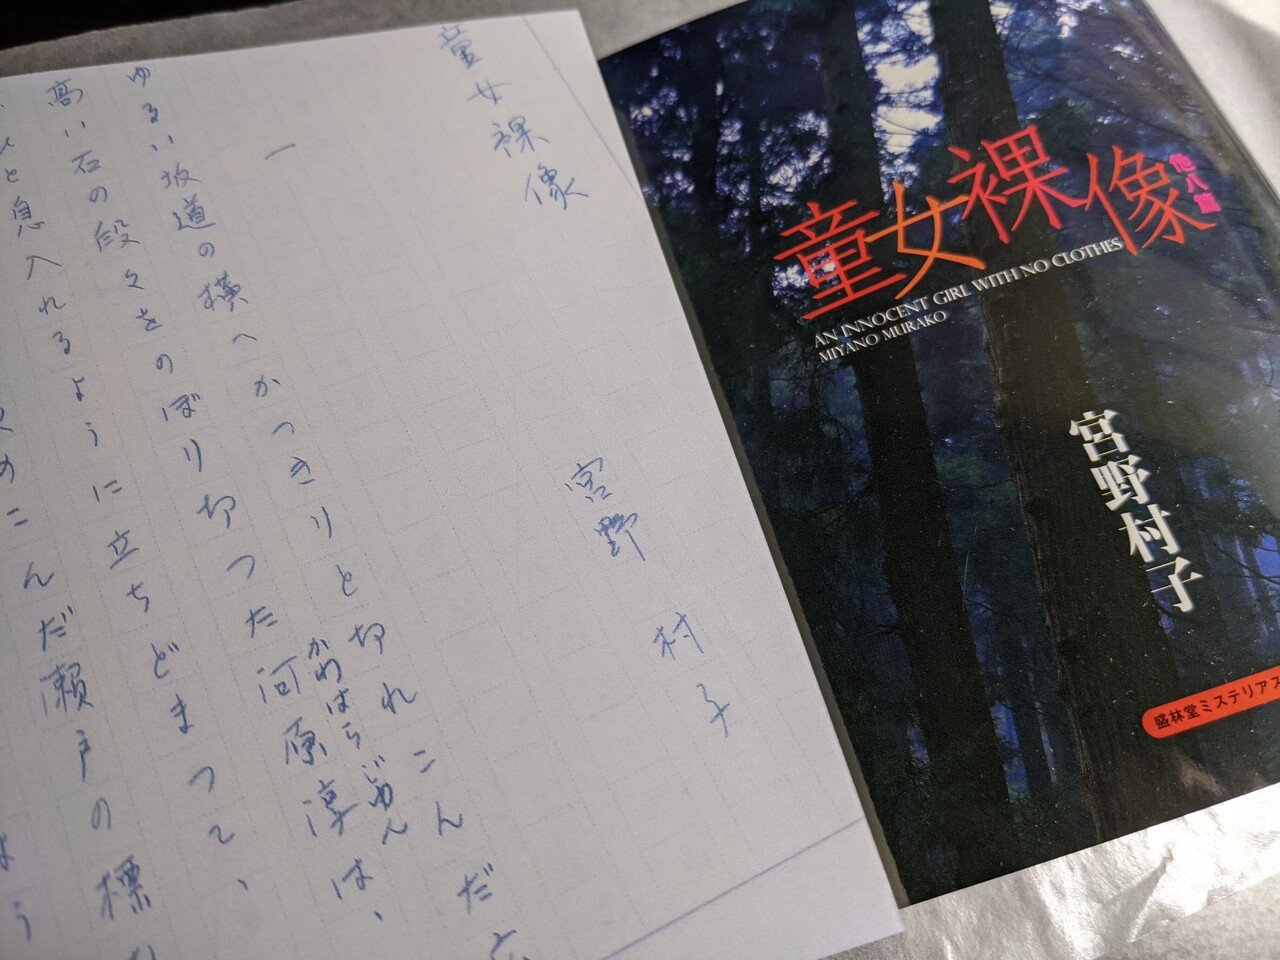 童女裸像
宮野 村子
一
ゆるい坂道の横へかつきりと切れこんだ
高い石の段々をのぼり切つた河原淳は、
かわはらじゅん
と息入れるように立ちどまつて、
めこんだ瀬戸の標
よう
童女裸像
他八篇
AN INNOCENT GIRL WITH NO CLOTHES
MIYANO MURAKO
宮野村子
盛林堂ミステリアス